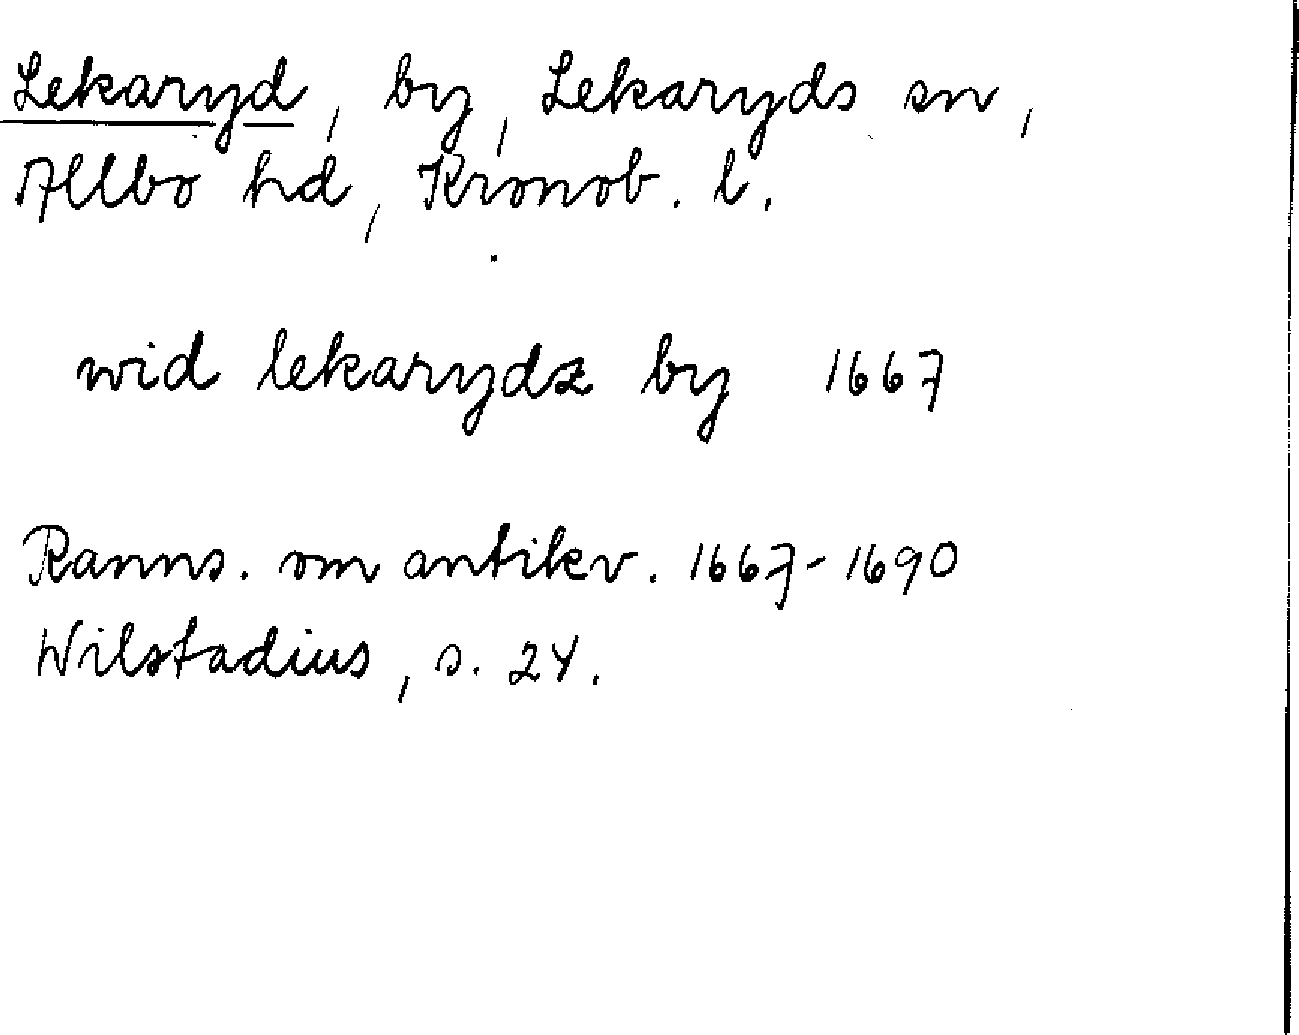 Lekaryd, by, Lekaryds sn,
Allbo hd, Kronob. l.
wid lekarydz by 1667
Ranns. om antikv. 1667-1690
Wilstadius, s. 24.